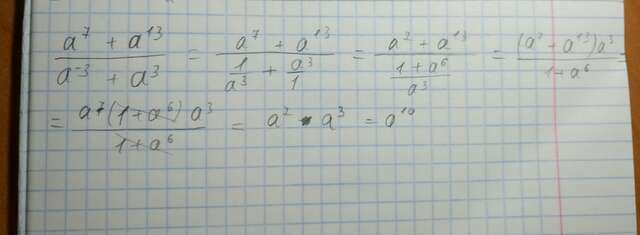 (a⁷ + a¹³)/(a⁻³ + a³) = (a⁷ + a¹³)/(1/a³ + a³/1) = (a⁷ + a¹³)/((1 + a⁶)/a³) = ((a⁷ + a¹³)a³)/(1 + a⁶) =
= (a⁷(1 + a⁶)a³)/(1 + a⁶) = a⁷ · a³ = a¹⁰